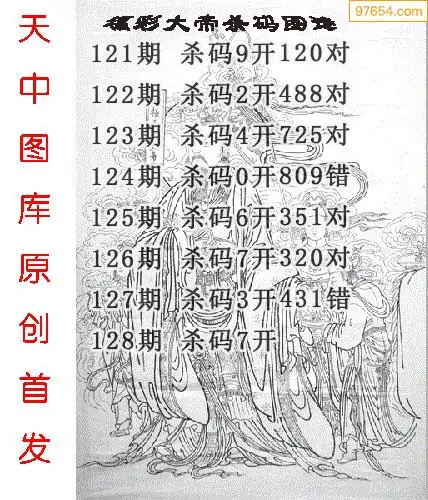 97654.com
福彩大帝杀码图选
121期 杀码9开120对
122期 杀码2开488对
123期 杀码4开725对
124期 杀码0开809错
125期 杀码6开351对
126期 杀码7开320对
127期 杀码3开431错
128期 杀码7开
天中图库原创首发